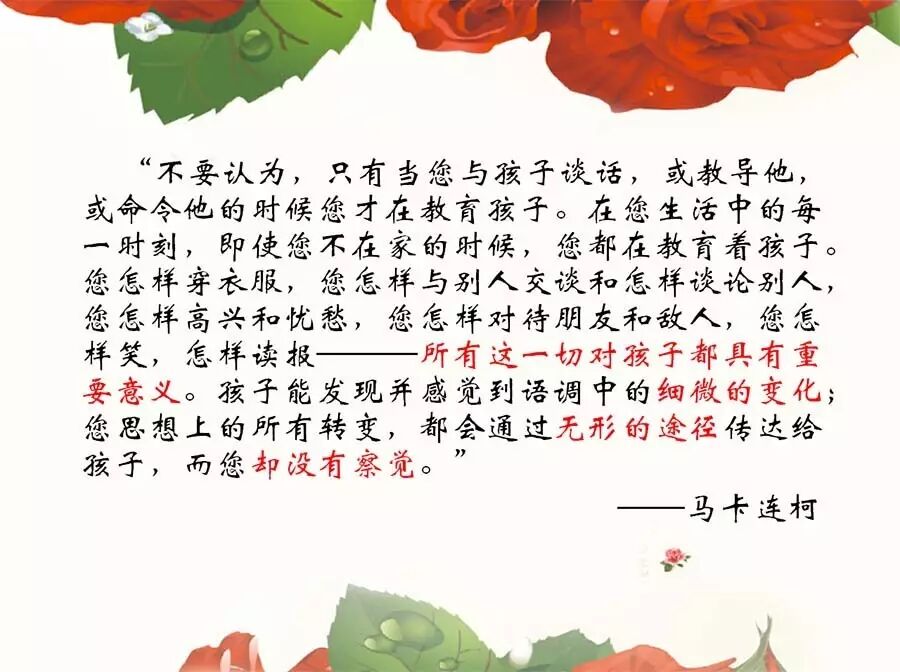 “不要认为，只有当您与孩子谈话，或教导他，
或命令他的时候您才在教育孩子。在您生活中的每
一时刻，即使您不在家的时候，您都在教育着孩子。
您怎样穿衣服，您怎样与别人交谈和怎样谈论别人，
您怎样高兴和忧愁，您怎样对待朋友和敌人，您怎
样笑，怎样读报———所有这一切对孩子都具有重
要意义。孩子能发现并感觉到语调中的细微的变化；
您思想上的所有转变，都会通过无形的途径传达给
孩子，而您却没有察觉。”
——马卡连柯